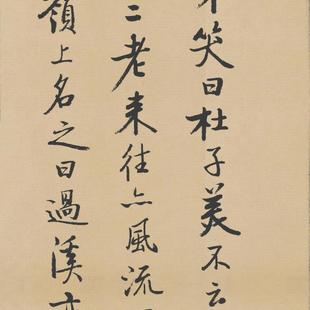 笑曰杜子美不云
二老来往亦風流
嶺上名之曰過溪亦